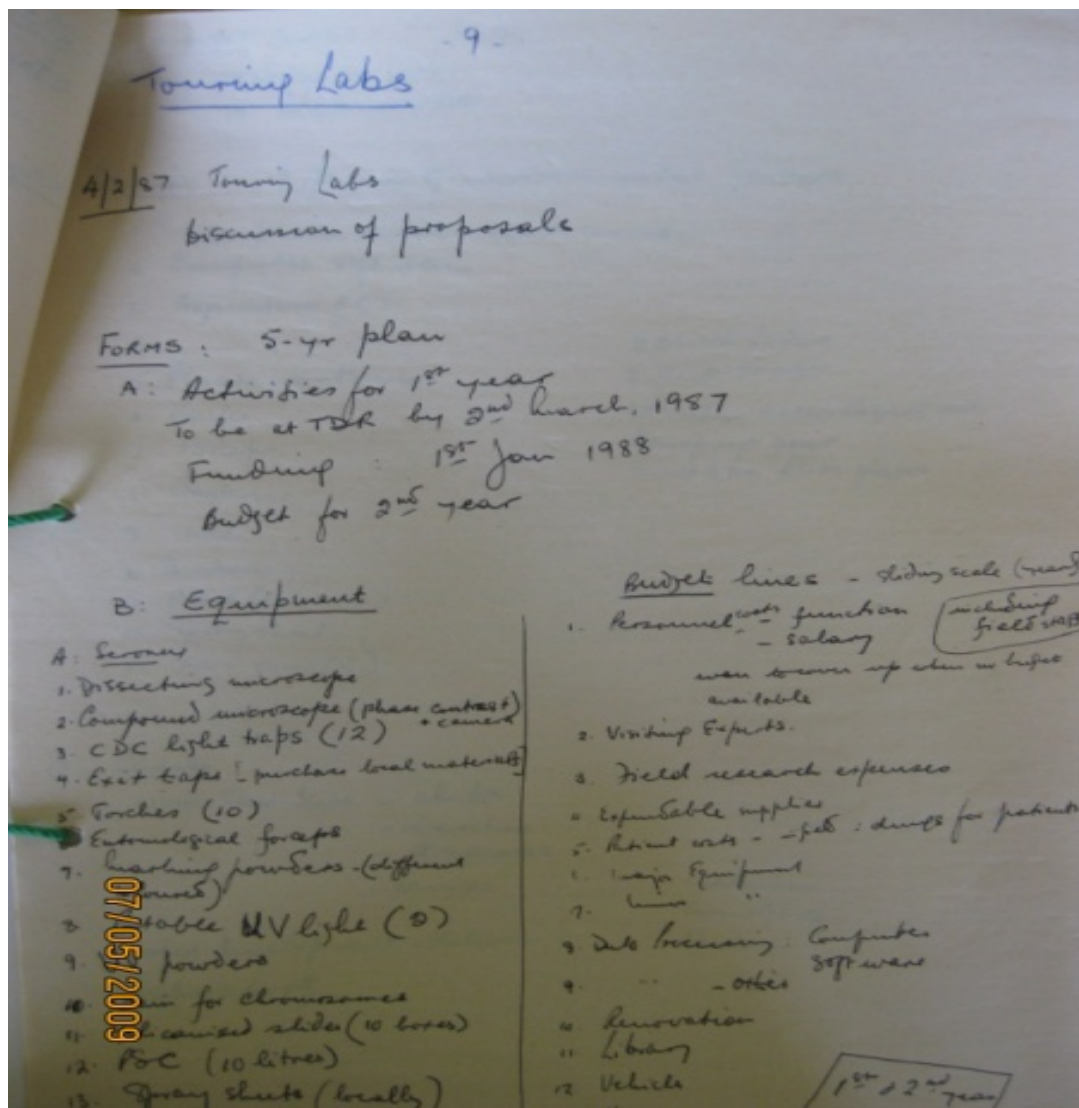 - 9 -
Touring Labs
4/2/87 Touring Labs
Discussion of proposals
FORMS : 5-yr plan
A: Activities for 1st year
To be at TDR by 2nd March, 1987
Funding : 1st Jan 1988
Budget for 2nd year
B: Equipment
A:
1. Dissecting microscope
2. Compound microscope (phase contrast)
+ camera
3. CDC light traps (12)
4. Exit traps [purchase local materials]
5. Torches (10)
Entomological forceps
7. Marking powders - (different
8 UV light (2)
9. powders
10. for chromosomes
11. slides (10 boxes)
12. (10 litres)
13. Spray sheets (locally)
Budget lines - sliding scale
1. Personnel costs - function
- salary
including
field staff
when no budget
available
2. Visiting Experts.
3. Field research expenses
4. Expendable supplies
5. Patient costs - : drugs for patients
Major Equipment
7. "
8 Data Processing : Computer
Software
9. " - other
10 Renovation
11 Library
12 Vehicle
1st + 2nd year
07/05/2009